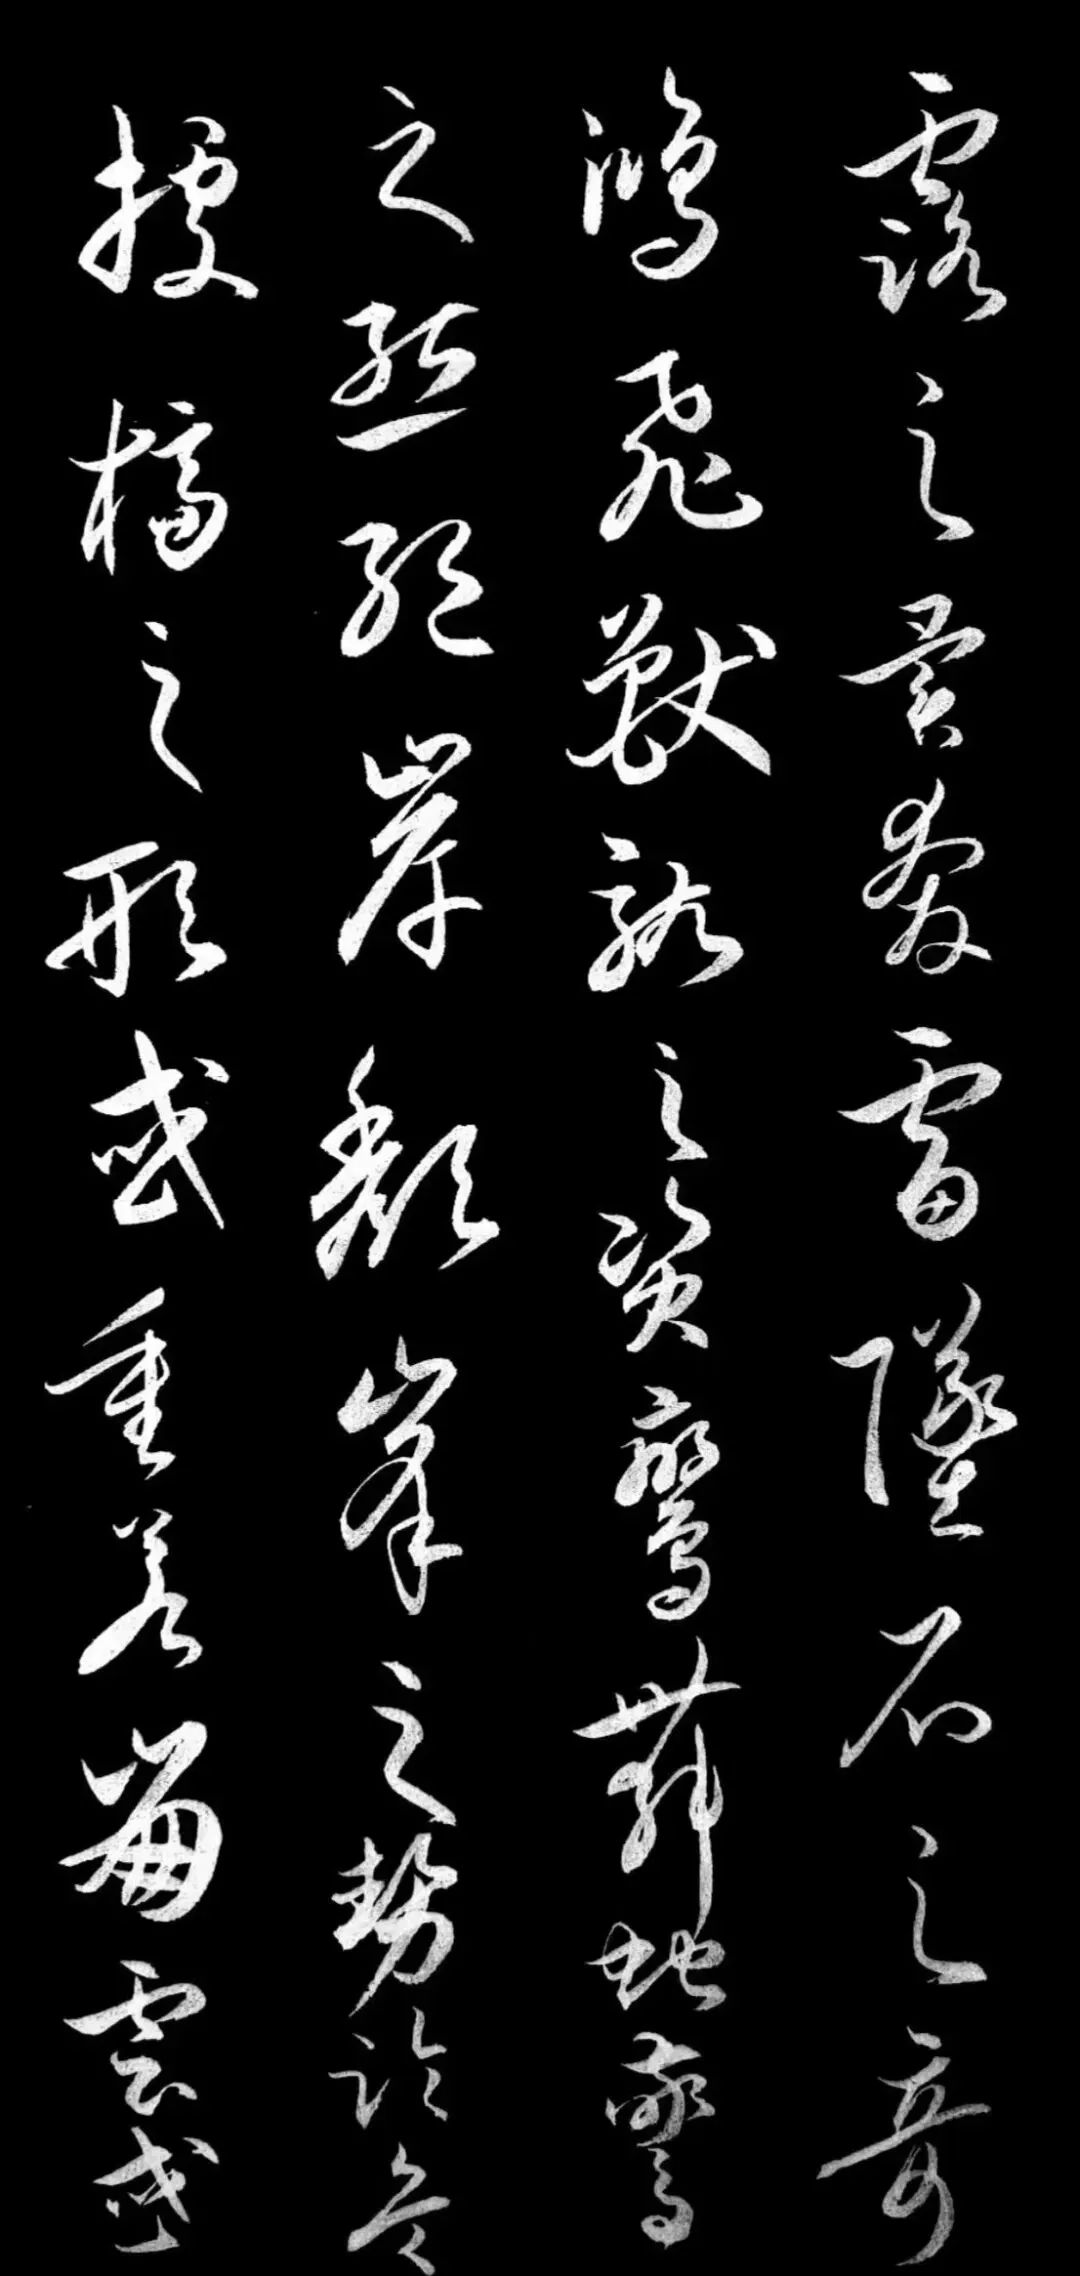 露之異奔雷墜石之奇
鴻飛獸駭之資鸞舞蛇驚
之態絕岸頹峯之勢臨危
據槁之形或重若崩雲或